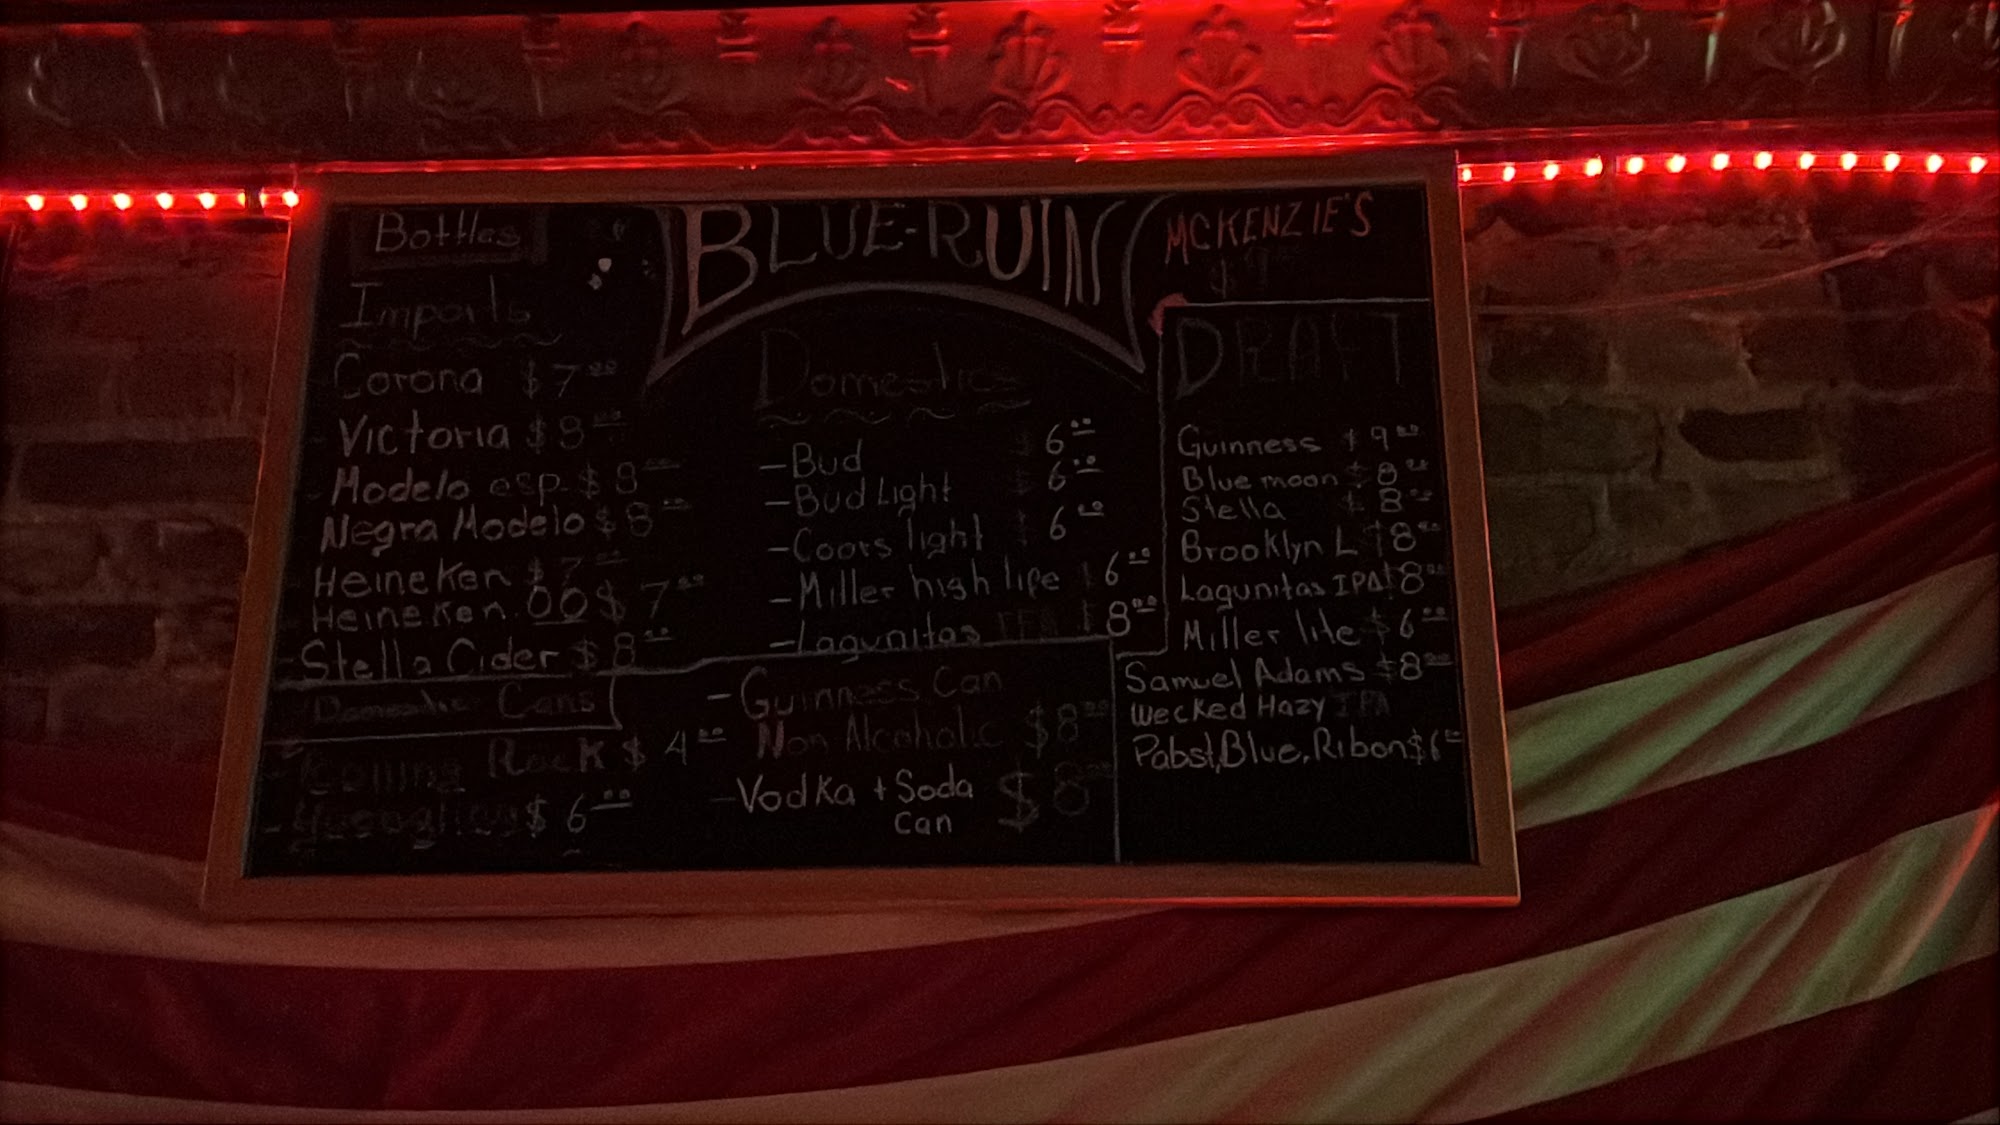 BLUE-RUIN
Bottles
Imports
Corona $7.00
- Victoria $8.00
- Modelo esp. $8.00
Negra Modelo $8.00
- Heineken $7.00
Heineken 00 $7.00
- Stella Cider $8.00
Domestic Cans
- Rolling Rock $4.00
- $6.00
Domestics
- Bud 6.00
- Bud Light 6.00
- Coors light 6.00
- Miller high life 6.00
- Lagunitas IPA 8.00
- Guinness Can
Non Alcoholic $8.00
- Vodka + Soda $8.00
can
MCKENZIE'S
DRAFT
Guinness $9.00
Blue moon $8.00
Stella $8.00
Brooklyn L $8.00
Lagunitas IPA $8.00
Miller lite $6.00
Samuel Adams $8.00
Wecked Hazy IPA
Pabst,Blue.Ribon $6.00